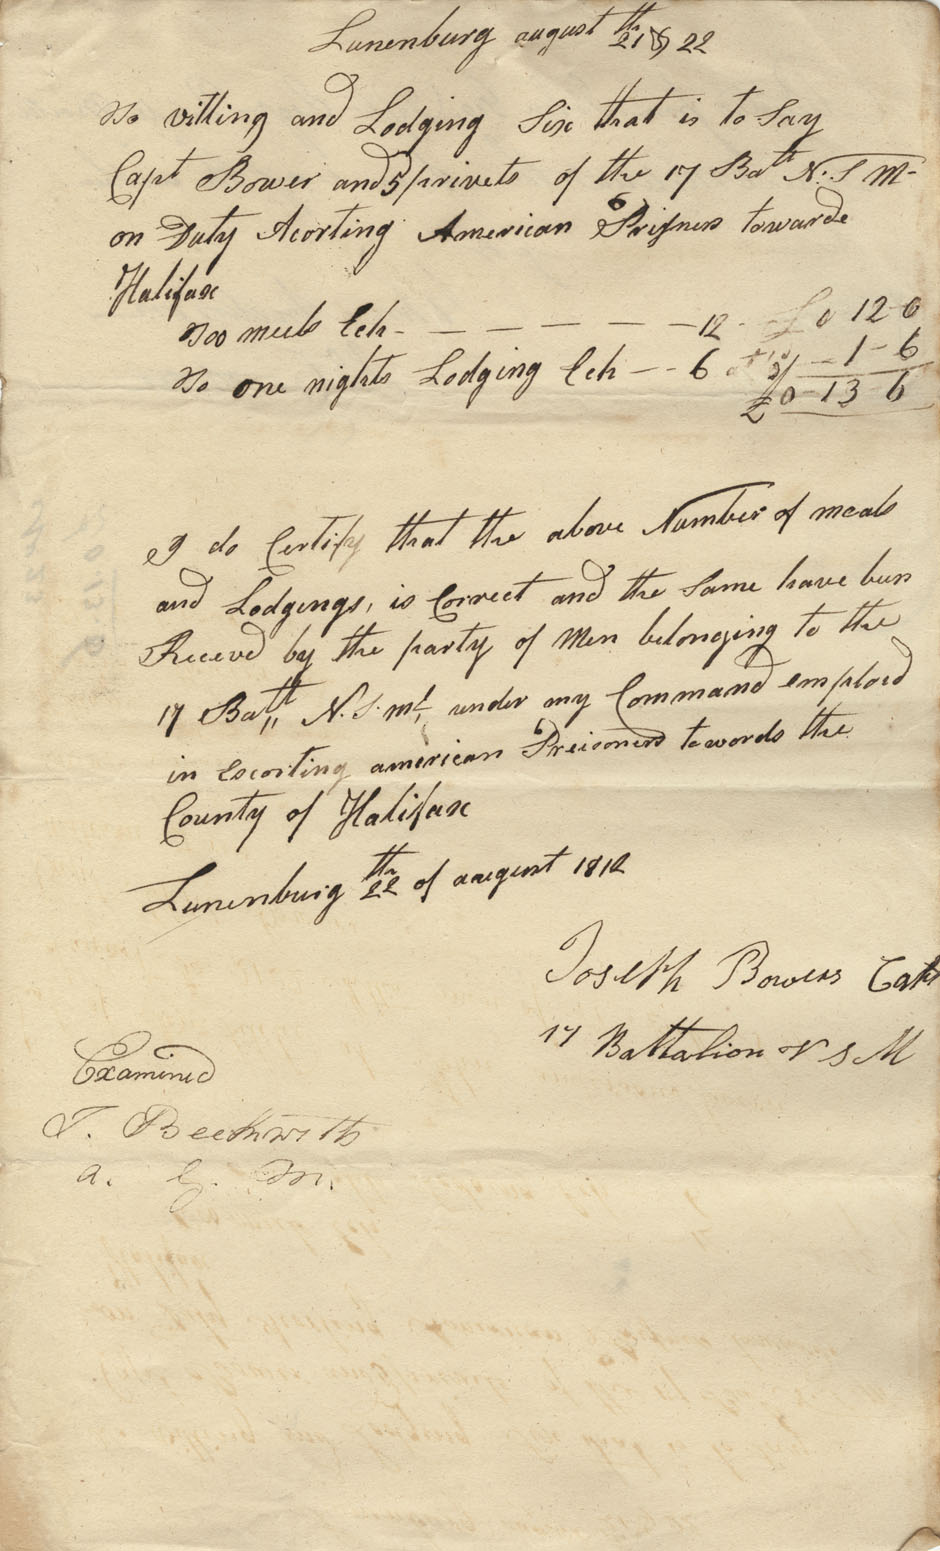 Lunenburg august 21th & 22
To vitling and Lodging Six that is to Say
Capt Bower and 5 privets of the 17 Batt N. S M-
on Duty Acorting American Prisners towarde
Halifax
Too meels Ech - - - - - - - 12 - £ 0 12-0
To one nights Lodging Ech - - 6 - 1 - 6
£ 0-13 6
I do Certify that the above Number of meals
and Lodgings, is Correct and the Same have bun
Receved by the party of Men belonging to the
17 Batt,, N. S. Mt, under my Command emploid
in Escorting american Preisoners towords the
County of Halifax
Lunenburg 22th of august 1812
Joseph Bowers Capt
17 Battalion N S M
Examined
T. Beckwith
a. G. M.